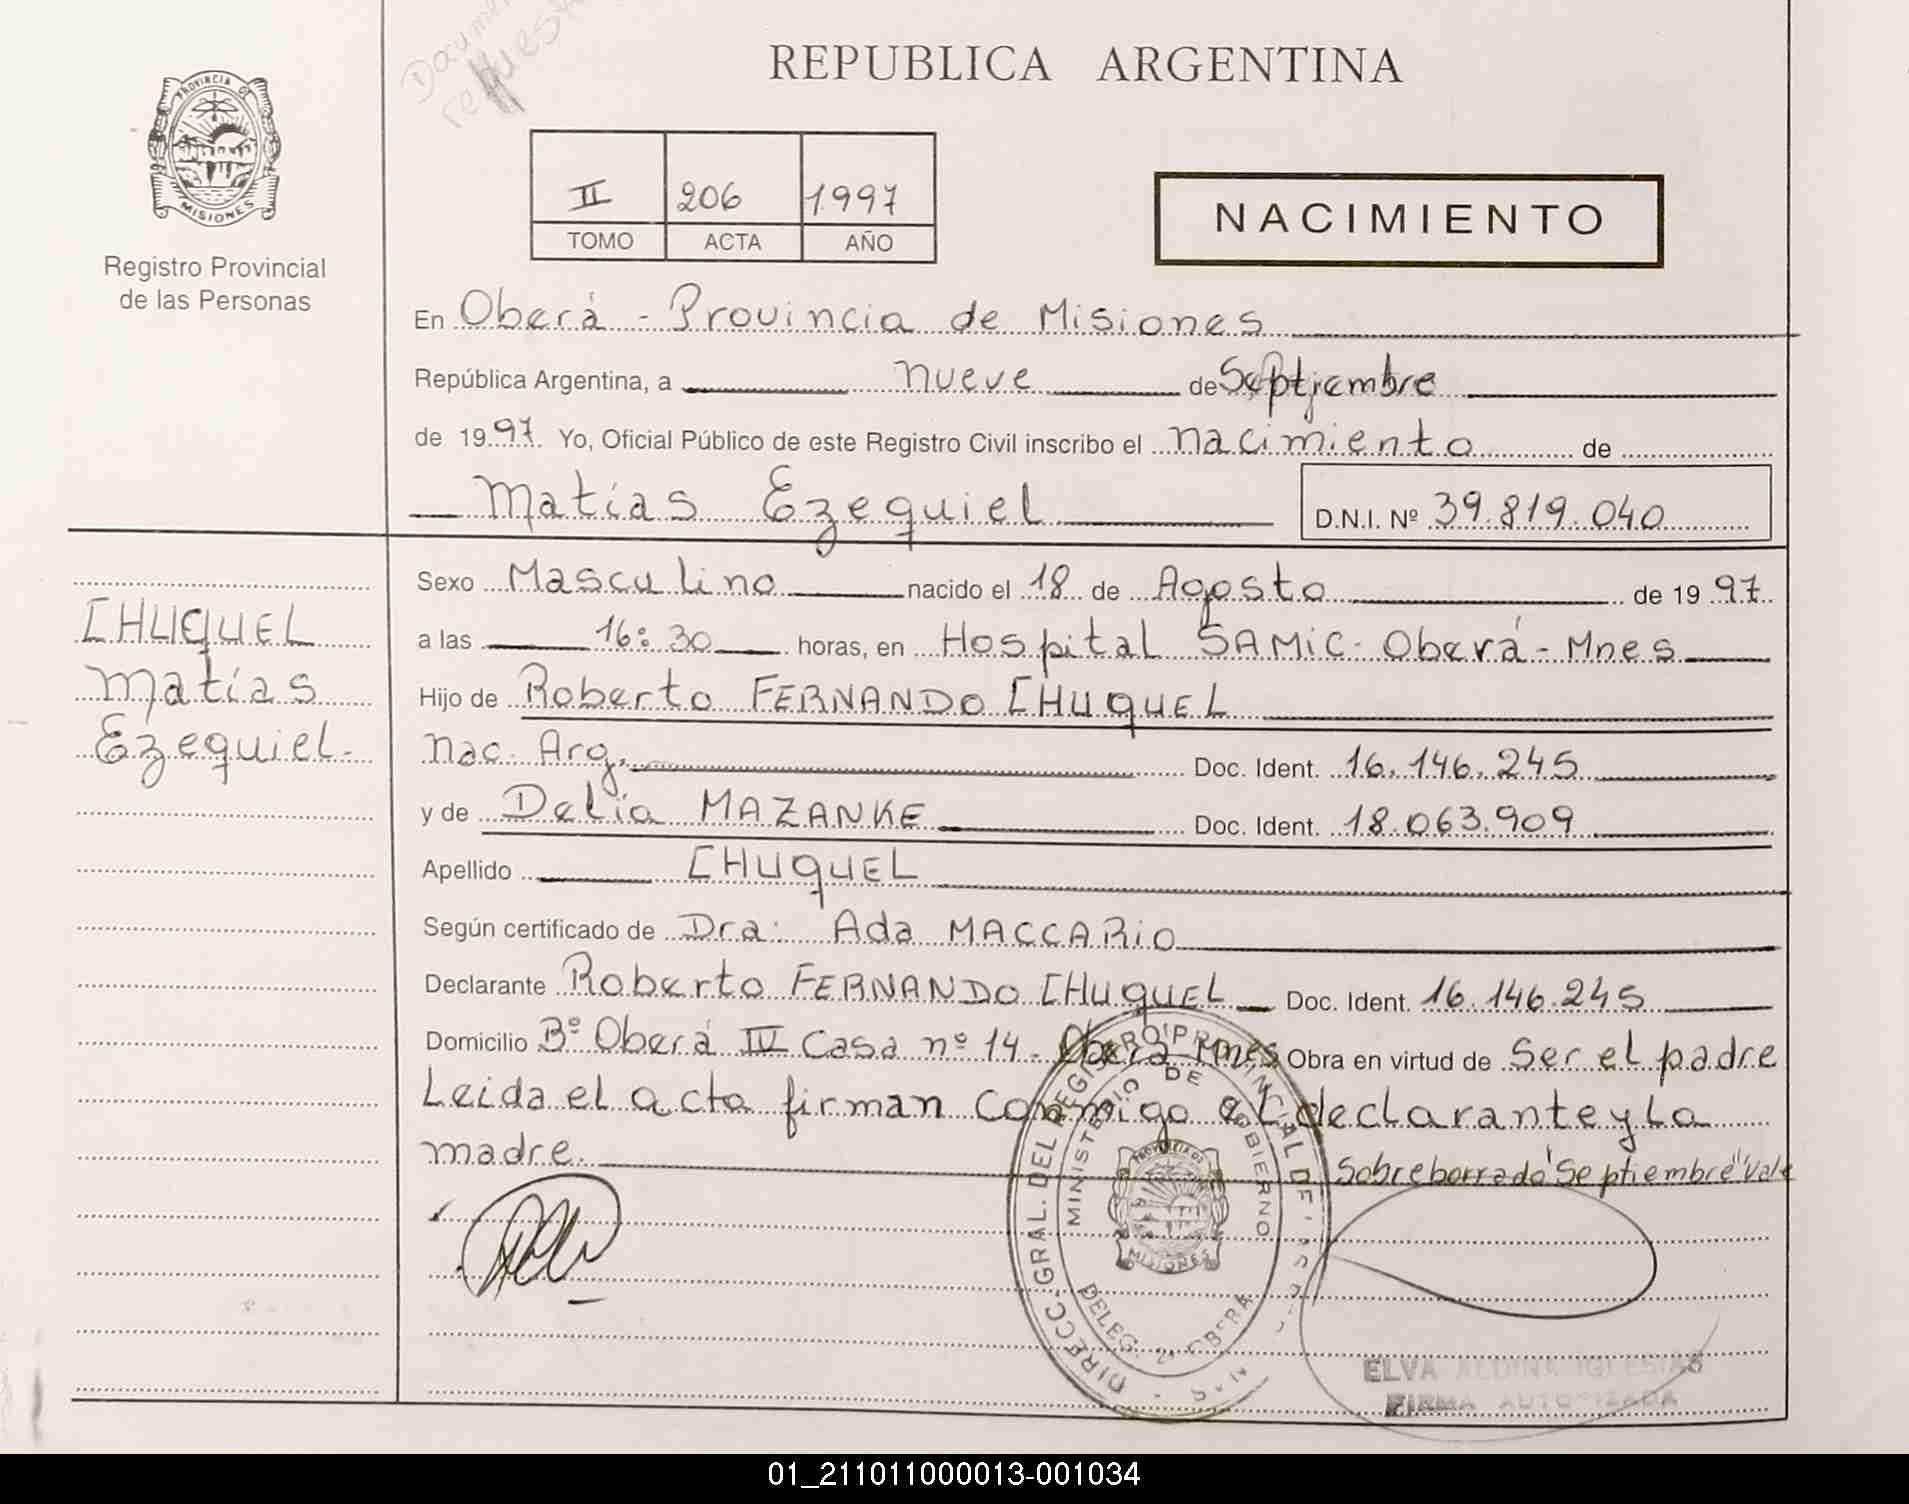 REPUBLICA ARGENTINA
PROVINCIA DE
MISIONES
Registro Provincial
de las Personas
II 206 1997
TOMO ACTA AÑO
NACIMIENTO
En Oberá - Provincia de Misiones
República Argentina, a nueve de Septiembre
de 1997. Yo, Oficial Público de este Registro Civil inscribo el nacimiento de
Matías Ezequiel D.N.I. Nº 39.819.040
CHUQUEL
Matías
Ezequiel.-
Sexo Masculino nacido el 18 de Agosto de 1997.
a las 16:30 horas, en Hospital SAMIC - Oberá - Mnes
Hijo de Roberto FERNANDO CHUQUEL
Nac. Arg. Doc. Ident. 16.146.245
y de Delia MAZANKE Doc. Ident. 18.063.909
Apellido CHUQUEL
Según certificado de Dra. Ada MACCARIO
Declarante Roberto FERNANDO CHUQUEL Doc. Ident. 16.146.245
Domicilio Bº Oberá IV Casa nº 14 - Oberá Mnes Obra en virtud de Ser el padre
Leida el acta firman conmigo el declarante y La
madre. Sobreborrado "Septiembre" Vale
DIRECC. GRAL. DEL REGISTRO PROVINCIAL DE
MINISTERIO DE GOBIERNO
PROVINCIA DE
MISIONES
DELEG. 2ª OBERA
ELVA ALDINA IGLESIAS
FIRMA AUTORIZADA
01_211011000013-001034